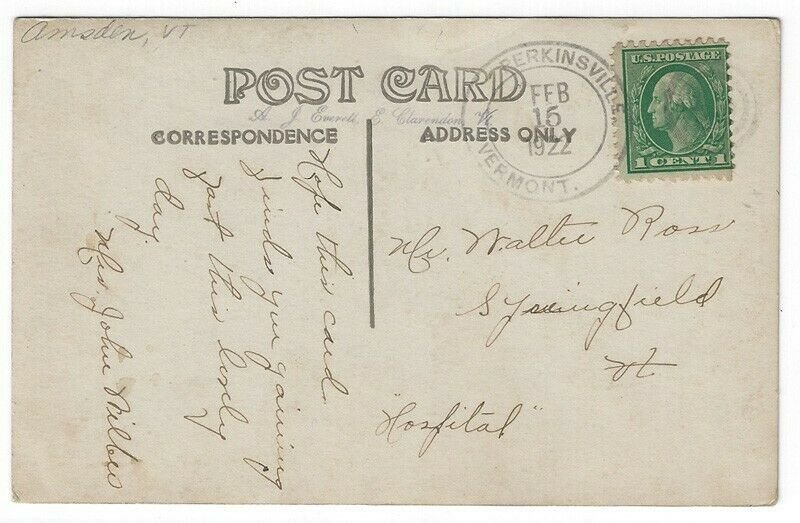 Amsden, VT
POST CARD
A. J. Everett, E. Clarendon, Vt
CORRESPONDENCE
ADDRESS ONLY
PERKINSVILLE
FEB
15
1922
VERMONT.
U.S. POSTAGE
1 CENT 1
Hope this card
finds you gaining
fast this lovely
day.
Mrs. John Wilbur
Mr. Walter Ross
Springfield
Vt
"Hospital"